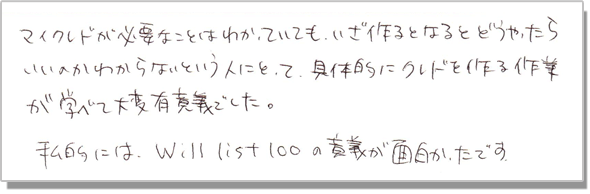 マイクレドが必要なことはわかっていても、いざ作るとなるとどうやったら
いいのかわからないという人にとって、具体的にクレドを作る作業
が学べて大変有意義でした。
私的には、Will list 100の意義が面白かったです